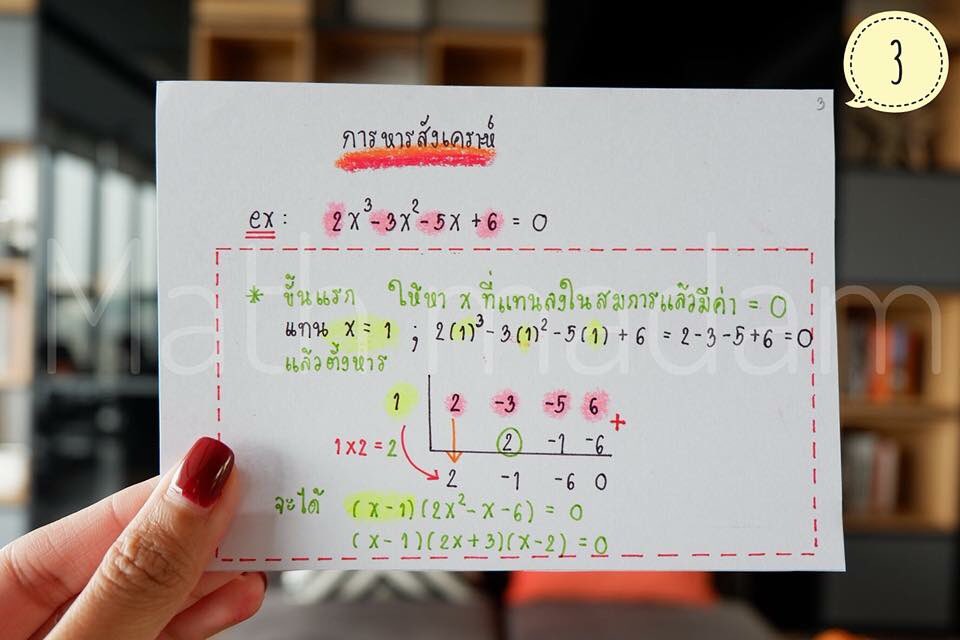 3
3
การหารสังเคราะห์
ex : 2x³-3x²-5x+6 = 0
* ขั้นแรก ให้หา x ที่แทนลงในสมการแล้วมีค่า = 0
แทน x = 1 ; 2(1)³-3(1)²-5(1)+6 = 2-3-5+6 =0
แล้วตั้งหาร
1 2 -3 -5 6 +
1×2 = 2 2 -1 -6
2 -1 -6 0
จะได้ (x-1)(2x²-x-6) = 0
(x-1)(2x+3)(x-2) =0
Math madam